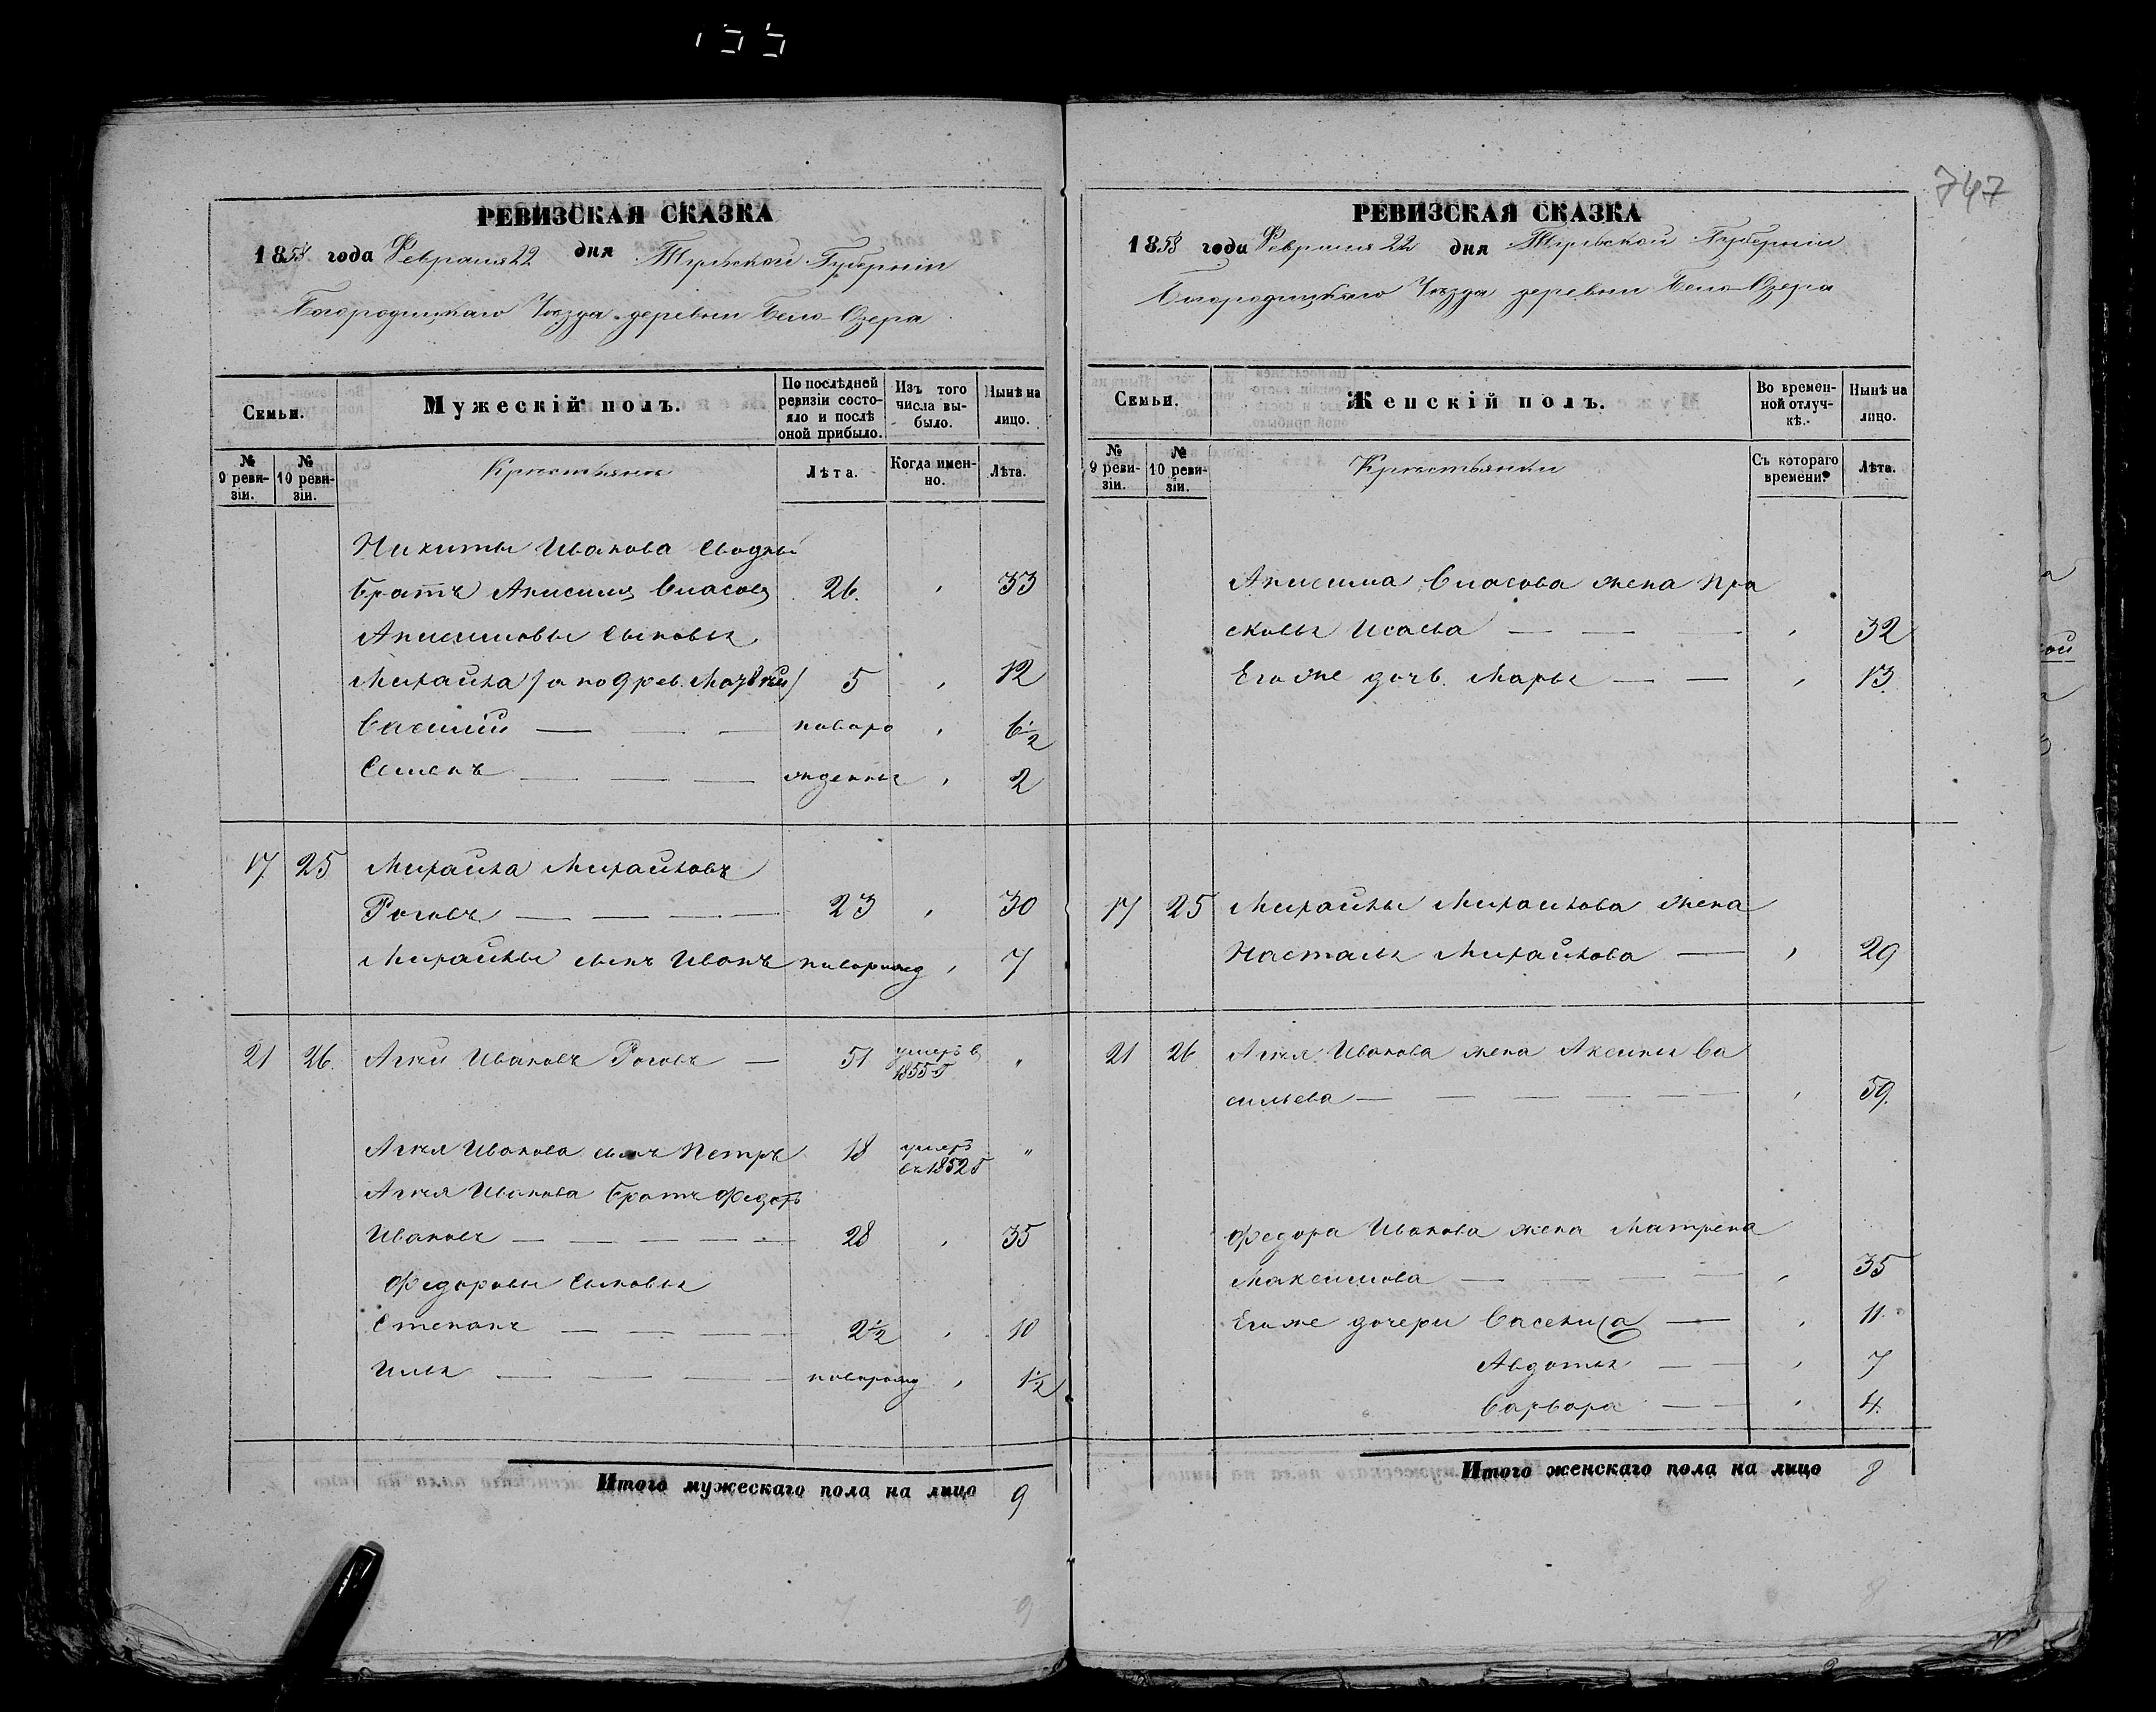 747
РЕВИЗСКАЯ СКАЗКА
1858 года Февраля 22 дня Тульской Губернiи
Богородицкаго Уѣзда деревни Бело-Озера
Семьи.
Мужескiй полъ.
По послѣдней ревизiи состояло и послѣ оной прибыло.
Изъ того числа выбыло.
Нынѣ на лицо.
№ 9 ревизiи.
№ 10 ревизiи.
Крестьяне
Лѣта.
Когда именно.
Лѣта.
Никиты Иванова сводны
братъ Анисимъ Власовъ 26. 33
Анисимовы сыновья
Михайла / а по 9 рев. Матвѣй / 5 12
Василiй — новоро 6½
Семенъ — жденны 2
17 25 Михайла Михайловъ
Роговъ — 23 30
Михайлы сынъ Иванъ новорожд 7
21 26. Агѣй Ивановъ Роговъ — 51 умеръ в 1855 г "
Агѣя Иванова сынъ Петръ 18 умеръ въ 1852 г "
Агѣя Иванова братъ Федотъ
Ивановъ — 28 35
Федоровы сыновья
Степанъ — 2½ 10
Илья — новорожд 1½
Итого мужескаго пола на лицо 9
РЕВИЗСКАЯ СКАЗКА
1858 года Февраля 22 дня Тульской Губернiи
Богородицкаго Уѣзда деревни Бело-Озера
Семьи.
Женскiй полъ.
Во временной отлучкѣ.
Нынѣ на лицо.
№ 9 ревизiи.
№ 10 ревизiи.
Крестьянки
Съ котораго времени.
Лѣта.
Анисима Власова жена Пра
сковья Исаева — 32
Его же дочь Марья — 13.
17 25 Михайлы Михайлова жена
Настасья Михайлова — 29
21 26 Агѣя Иванова жена Аксинья Ва
сильева — 59.
Федора Иванова жена Матрена
Максимова — 35
Его же дочери Васениса — 11.
Авдотья — 7
Варвара — 4.
Итого женскаго пола на лицо 8
9
8